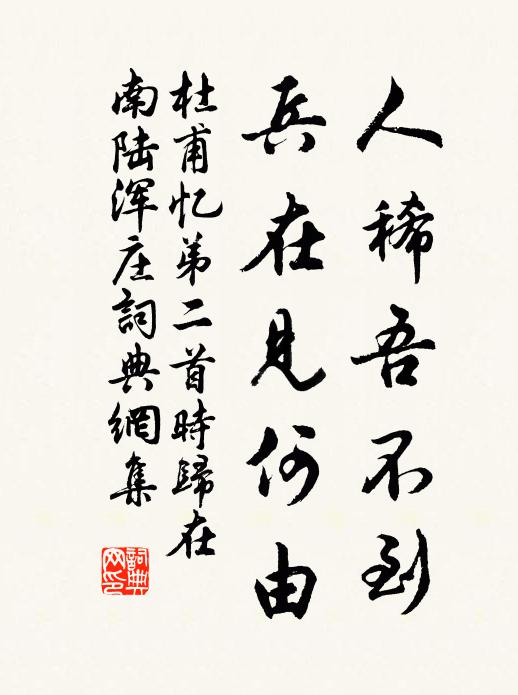 人稀吾不到
兵在见何由
杜甫忆弟二首時歸在
南陆浑庄詞典網集
詞典网印